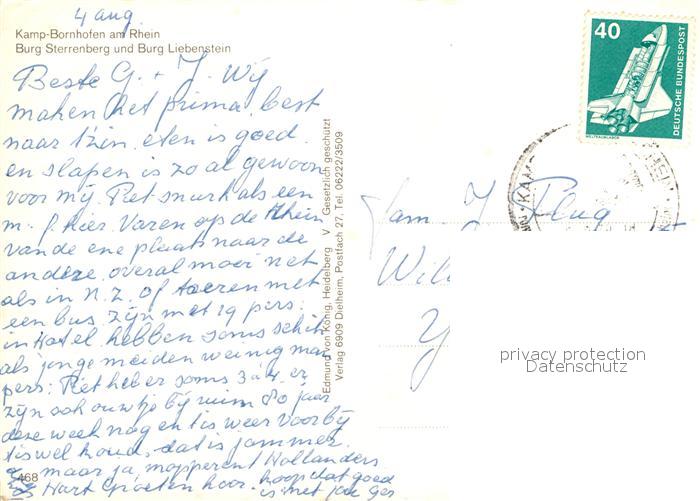 4 aug.
Kamp-Bornhofen am Rhein
Burg Sterrenberg und Burg Liebenstein
Beste G. + J. Wij
maken het prima best
naar 't zin. eten is goed
en slapen is zo al gewoon
voor mij Piet snurk als een
hier. Varen op de Rhein
van de ene plaats naar de
andere. overal mooi net
als in N.Z. of toeren met
een bus. zijn met 19 pers:
in Hotel. hebben soms schik
als jonge meiden weinig man
pers: Piet heb er soms 3 à 4. er
zijn ook ouwtje bij ruim 80 jaar
deze week nog en 't is weer voorbij
't is wel koud. dat is jammer
maar ja, Hollanders
Hart Groeten hoor. hoop dat goed
is met jou
468
Edmund von König, Heidelberg V Gesetzlich geschützt
Verlag 6909 Dielheim, Postfach 27, Tel. 06222/3509
40
DEUTSCHE BUNDESPOST
WELTRAUMLABOR
KAMP
Fam. J. Plug
privacy protection
Datenschutz